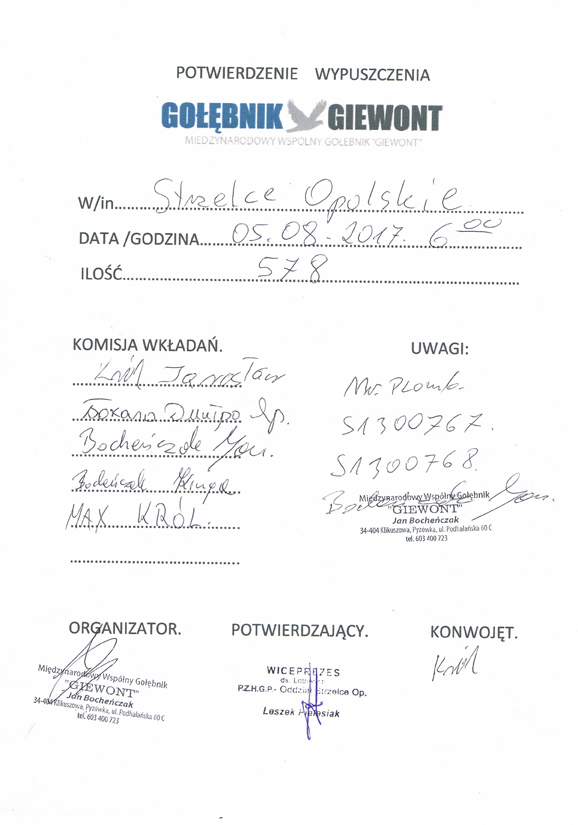 POTWIERDZENIE WYPUSZCZENIA
GOŁĘBNIK GIEWONT
MIĘDZYNARODOWY WSPÓLNY GOŁĘBNIK "GIEWONT"
W/in. Strzelce Opolskie
DATA /GODZINA. 05.08-2017. 6 00
ILOŚĆ 578
KOMISJA WKŁADAŃ.
Król Jarosław
Bocheńczak
Bocheńczak Kinga
MAX KRÓL.
UWAGI:
Nr. Plomb.
S1300767.
S1300768.
Międzynarodowy Wspólny Gołębnik
"GIEWONT"
Jan Bocheńczak
34-404 Klikuszowa, Pyzówka, ul. Podhalańska 60 C
tel. 603 400 723
ORGANIZATOR.
Międzynarodowy Wspólny Gołębnik
"GIEWONT"
Jan Bocheńczak
34-404 Klikuszowa, Pyzówka, ul. Podhalańska 60 C
tel. 603 400 723
POTWIERDZAJĄCY.
WICEPREZES
ds.
P.Z.H.G.P.- Oddział Strzelce Op.
Leszek
KONWOJĘT.
Król